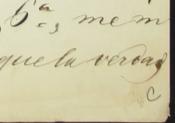 6.ª, mem
que la verdad
C